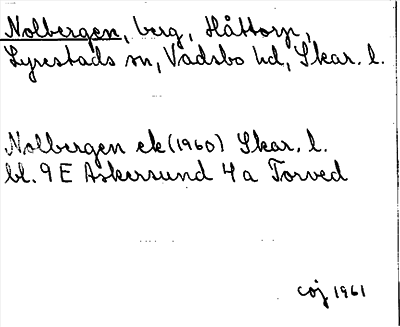 Nolbergen, berg, Håttorp,
Lyrestads sn, Vadsbo hd, Skar. l.
Nolbergen ek (1960) Skar. l.
bl. 9 E Askersund 4 a Torved
coj 1961